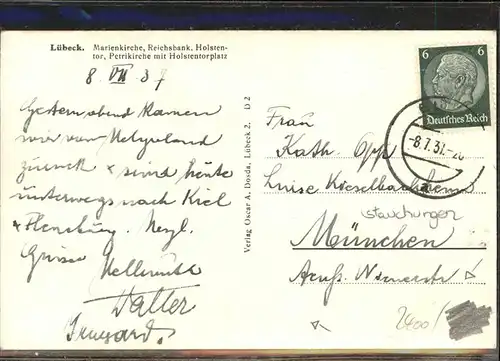 Lübeck. Marienkirche, Reichsbank, Holsten-
tor, Petrikirche mit Holstentorplatz
8. VII 37
Gestern abend kamen
wir von Helgoland
zurück + sind heute
unterwegs nach Kiel
+ Flensburg. Herzl.
Grüsse Hellmuth
Walter
Irmgard.
Verlag Oscar A. Dosda, Lübeck 2. D 2
6 6
Deutsches Reich
-8.7.37.-20
Frau
Kath. Opp
Luise Kieselbachheim
Stauchungen
München
2400